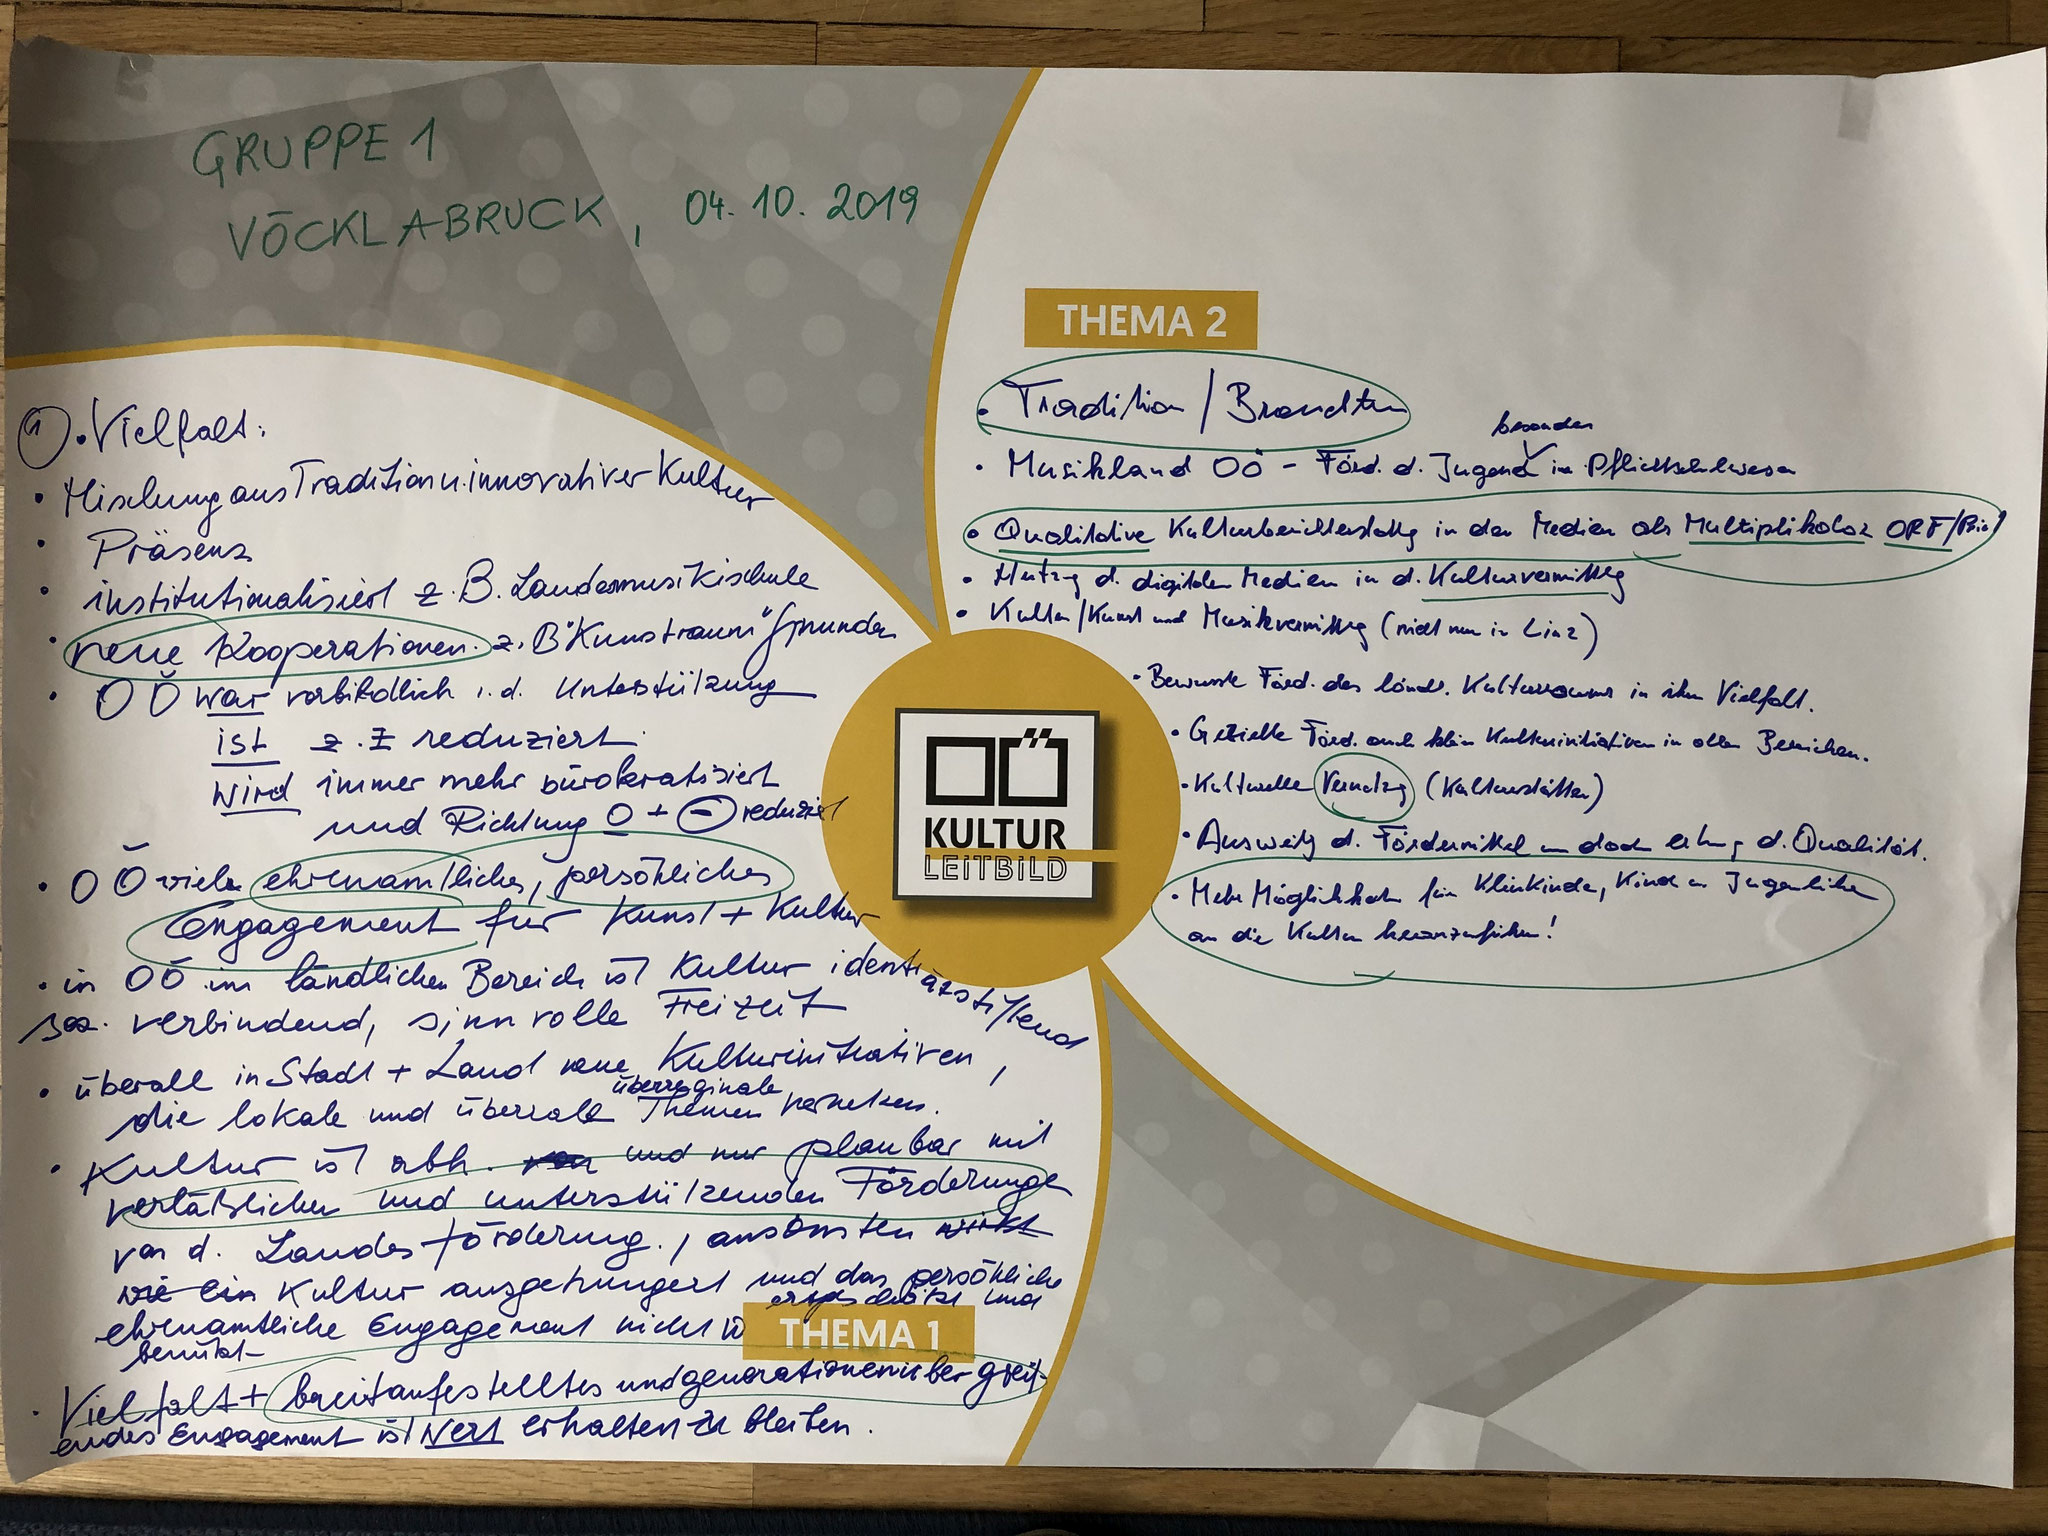 GRUPPE 1
VÖCKLABRUCK, 04.10.2019
① • Vielfalt:
• Mischung aus Tradition u. innovativer Kultur
• Präsenz
• institutionalisiert z.B. Landesmusikschule
• neue Kooperationen z.B "Kunstraum" Gmunden
• OÖ war vorbildlich i.d. Unterstützung
ist z.Z reduziert
wird immer mehr bürokratisiert
und Richtung 0 + ⊖ reduziert
• OÖ viele ehrenamtliches, persöhliches
Engagement für Kunst + Kultur
• in OÖ im ländlichen Bereich ist Kultur identitätsstiftend
soz. verbindend, sinnvolle Freizeit
• überall in Stadt + Land neue Kulturinitiativen,
überreginale
die lokale und überrale Themen vernetzen.
• Kultur ist abh. von und nur planbar mit
verläßlichen und unterstützenden Förderungen
von d. Landesförderung, ansonsten wirkt
wie ein Kultur ausgehungert und das persöhliche
ehrenamtliche Engagement nicht
THEMA 1
• Vielfalt + breitaufgestelltes und generationenübergreif-
endes Engagement ist Wert erhalten zu bleiben.
THEMA 2
• Tradition / Brauchtum
besonders
• Musikland OÖ - Förd. d. Jugend im Pflichtschulwesen
• Qualitative Kulturberichterstattg in den Medien als Multiplikator ORF/
• Nutzg d. digitalen Medien in d. Kulturvermittlg
• Kultur/Kunst und Musikvermittlg (nicht nur in Linz)
• Bewusste Förd. des ländl. Kulturraums in ihrer Vielfalt.
• Gezielte Förd. auch klein Kulturinitiativen in allen Bereichen.
• Kulturelle Vernetzg (Kulturstätten)
• Ausweitg d. Fördermittel d. Qualität.
• Mehr Möglichkeit für Kleinkinder, Kinder u. Jugendliche
an die Kultur heranzuführen!
OÖ
KULTUR
LEITBILD